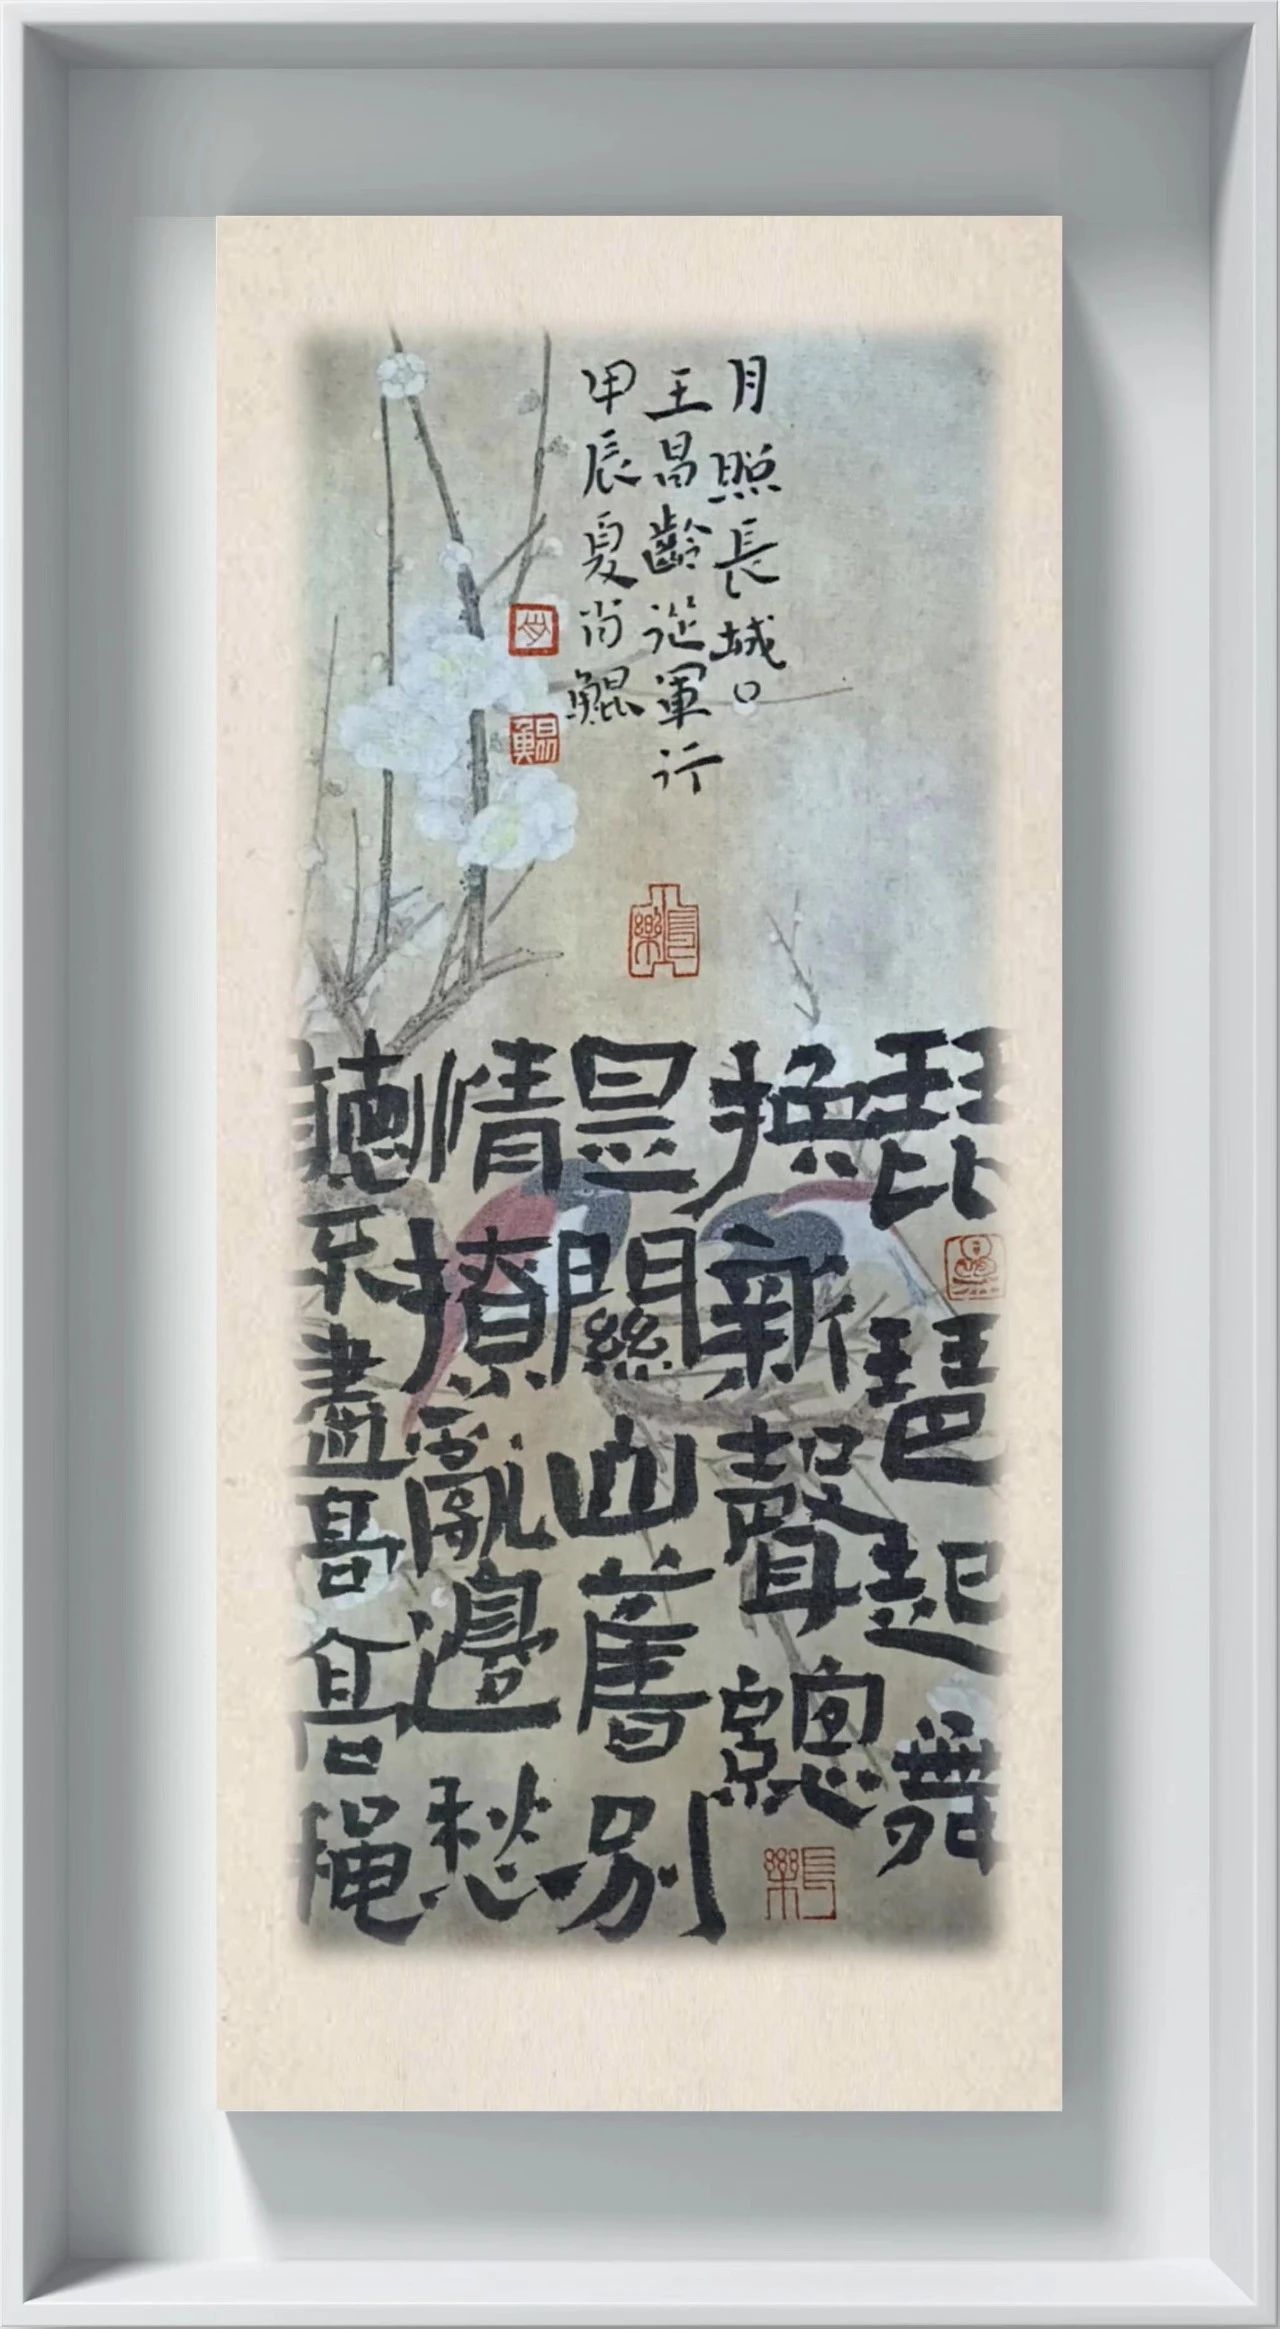 琵琶起舞
換新聲總
是關山舊別
情撩亂邊愁
聽不盡高高穐
月照長城。
王昌齡從軍行
甲辰夏尚鯤
長樂
長樂